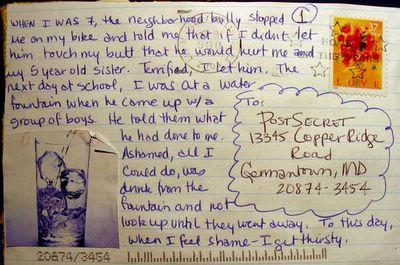 WHEN I WAS 7, the neighborhood bully stopped 1
me on my bike and told me that if I didn't let
him touch my butt that he would hurt me and
my 5 year old sister. Terrified, I let him. The
next day at school, I was at a water
fountain when he came up w/a
group of boys. He told them what
he had done to me.
Ashamed, all I
could do, was
drink from the
fountain and not
look up until they went away. To this day,
when I feel shame - I get thirsty.
To:
PostSecret
13345 Copper Ridge
Road
Germantown, MD
20874-3454
37
LOVE
20874/3454